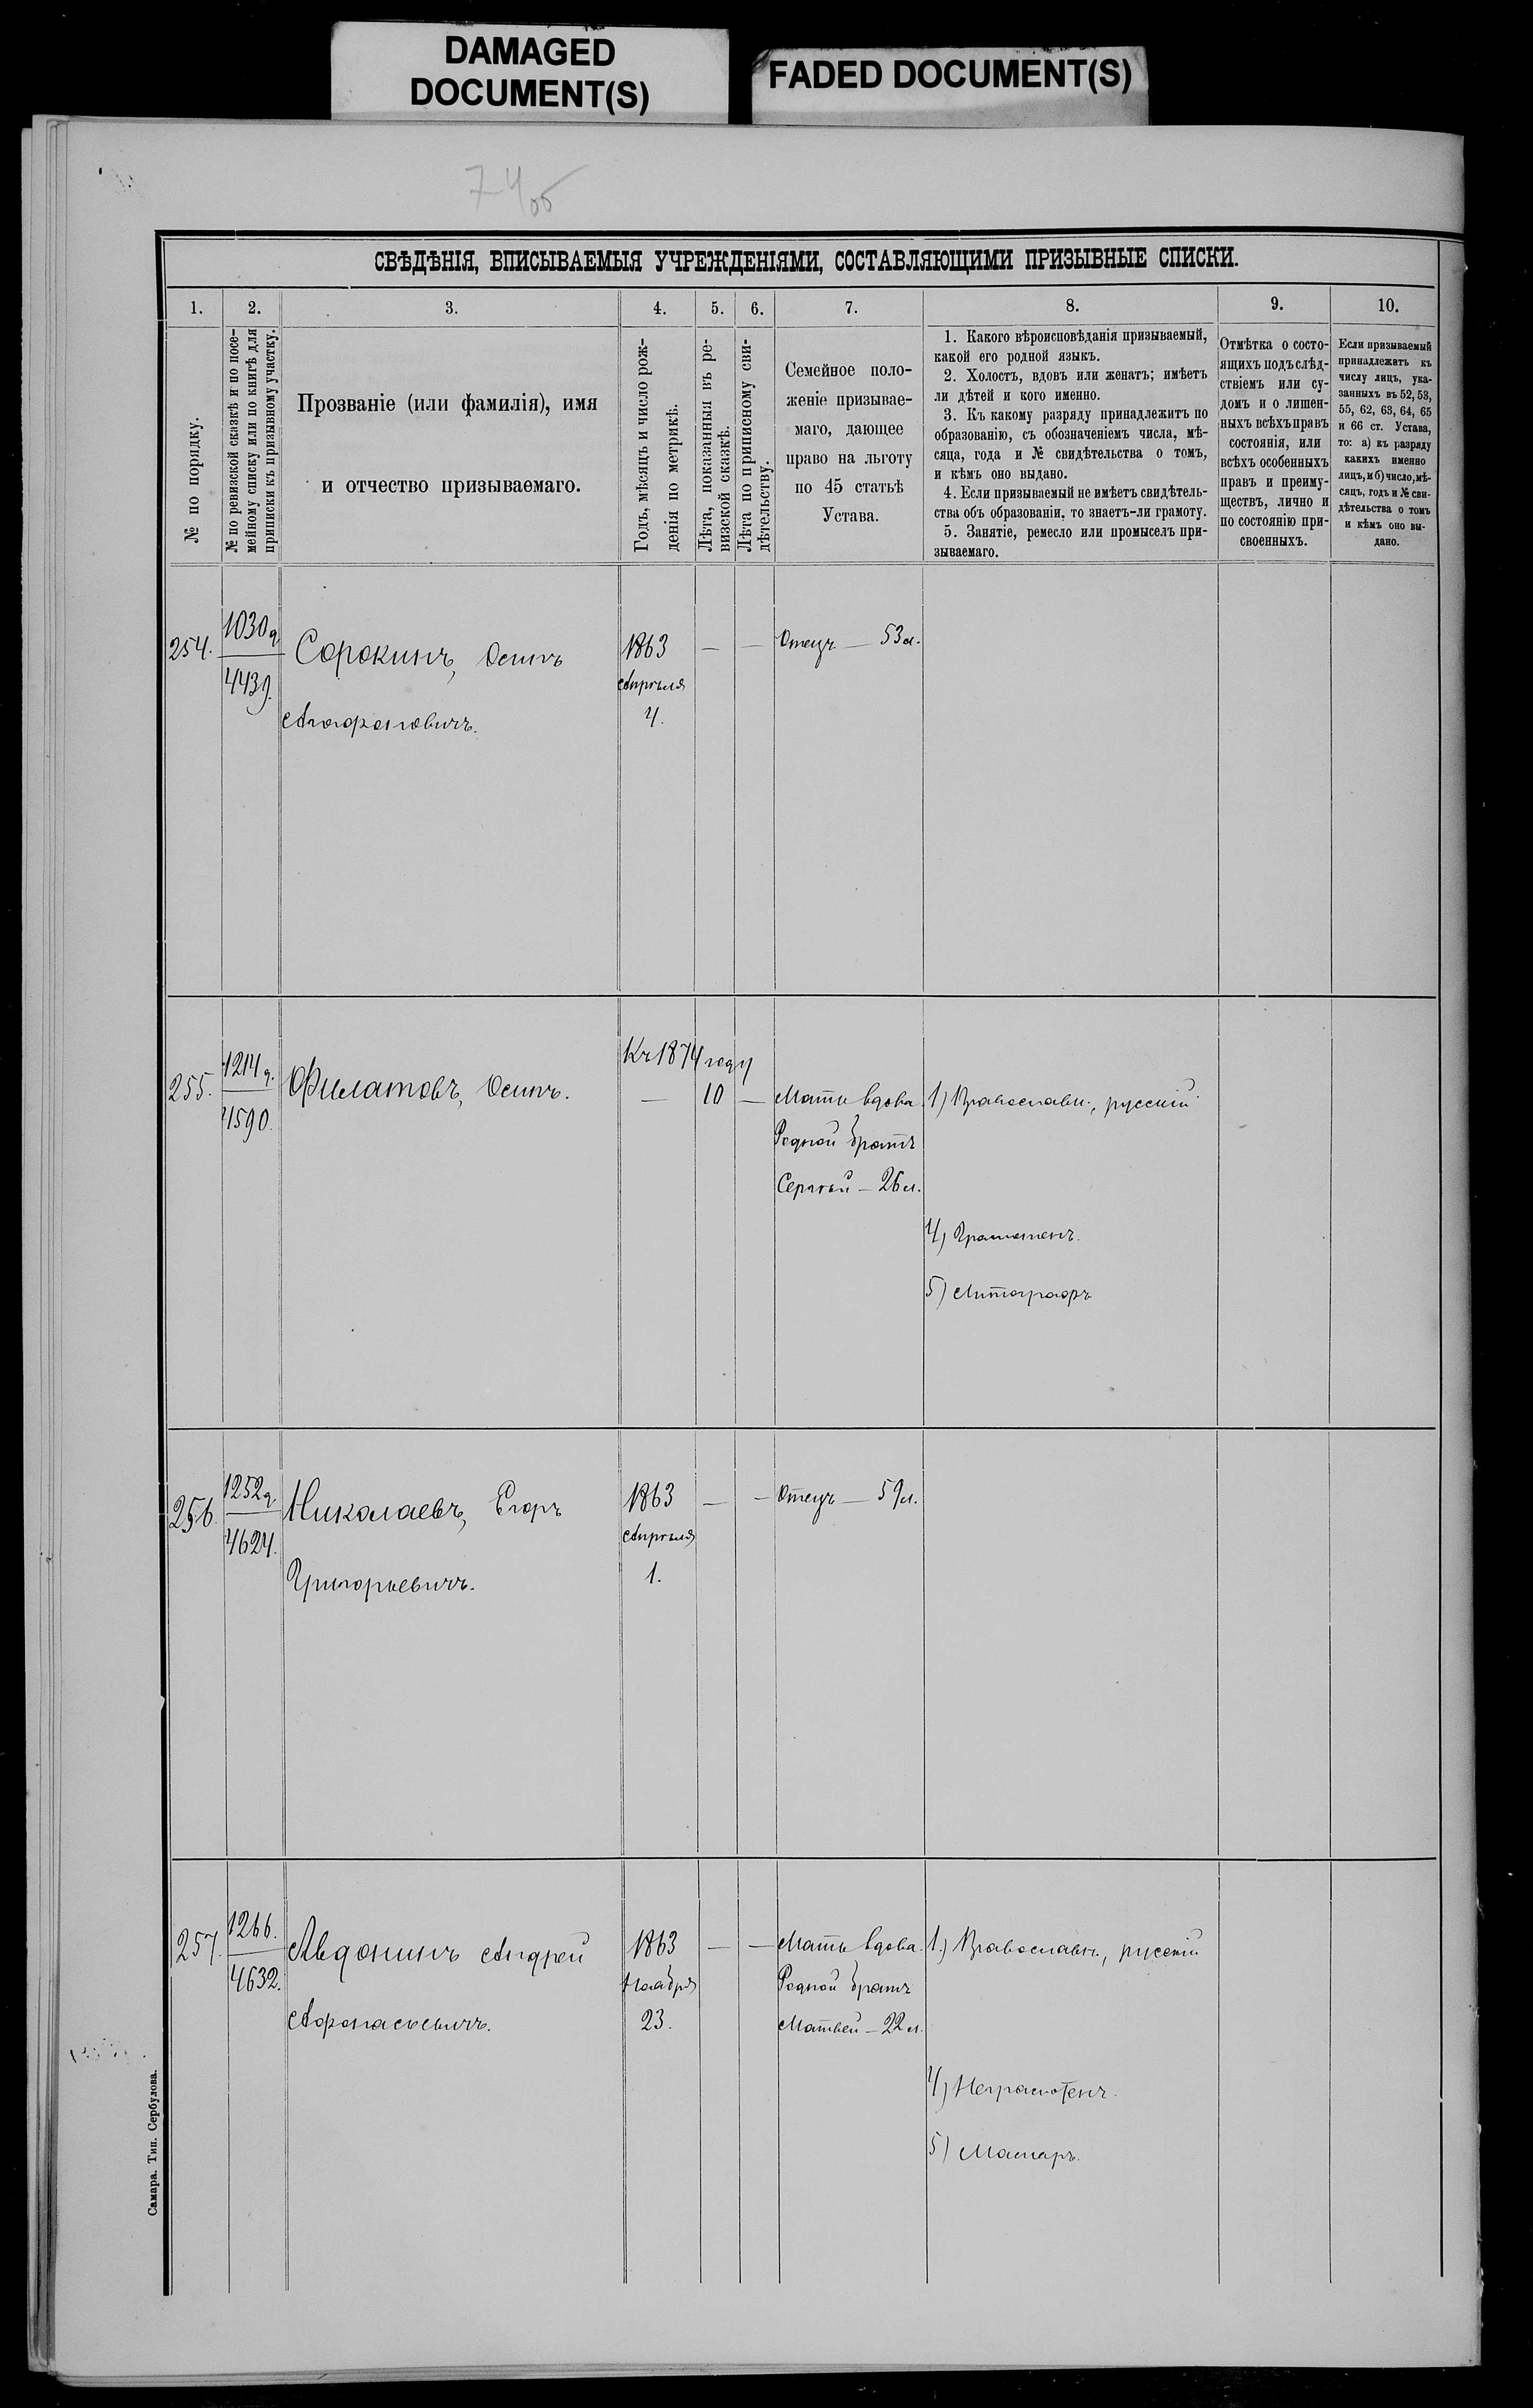 DAMAGED
DOCUMENT(S)
FADED DOCUMENT(S)
74об
СВѢДѢНІЯ, ВПИСЫВАЕМЫЯ УЧРЕЖДЕНІЯМИ, СОСТАВЛЯЮЩИМИ ПРИЗЫВНЫЕ СПИСКИ.
1.
2.
3.
4.
5.
6.
7.
8.
9.
10.
№ по порядку.
№ по ревизской сказкѣ и по посе-
мейному списку или по книгѣ для
приписки къ призывному участку.
Прозваніе (или фамилія), имя
и отчество призываемаго.
Годъ, мѣсяцъ и число рож-
денія по метрикѣ.
Лѣта, показанныя въ ре-
визской сказкѣ.
Лѣта по приписному сви-
дѣтельству.
Семейное поло-
женіе призывае-
маго, дающее
право на льготу
по 45 статьѣ
Устава.
1. Какого вѣроисповѣданія призываемый,
какой его родной языкъ.
2. Холостъ, вдовъ или женатъ; имѣетъ
ли дѣтей и кого именно.
3. Къ какому разряду принадлежитъ по
образованію, съ обозначеніемъ числа, мѣ-
сяца, года и № свидѣтельства о томъ,
и кѣмъ оно выдано.
4. Если призываемый не имѣетъ свидѣтель-
ства объ образованіи, то знаетъ-ли грамоту.
5. Занятіе, ремесло или промыселъ при-
зываемаго.
Отмѣтка о состо-
ящихъ подъ слѣд-
ствіемъ или су-
домъ и о лишен-
ныхъ всѣхъ правъ
состоянія, или
всѣхъ особенныхъ
правъ и преиму-
ществъ, лично и
по состоянію при-
своенныхъ.
Если призываемый
принадлежитъ къ
числу лицъ, ука-
занныхъ въ 52, 53,
55, 62, 63, 64, 65
и 66 ст. Устава,
то: а) къ разряду
какихъ именно
лицъ, и б) число, мѣ-
сяцъ, годъ и № сви-
дѣтельства о томъ
и кѣмъ оно вы-
дано.
254.
1030 д.
4439.
Сорокинъ, Осипъ
Агафоновичъ.
1863
Апрѣля
4.
—
—
Отецъ — 53 л.
255.
1214 д.
4590.
Филатовъ, Осипъ.
Къ 1874 году
—
10
—
Мать вдова
Родной братъ
Сергѣй — 26 л.
1) Православн., русскій
4) Грамотенъ.
5) Литографъ
256.
1252 д.
4624.
Николаевъ, Егоръ
Григорьевичъ.
1863
Апрѣля
1.
—
—
Отецъ — 59 л.
257.
1266.
4632.
Авдонинъ Андрей
Афонасьевичъ.
1863
Ноября
23.
—
—
Мать вдова.
Родной братъ
Матвей — 22 л.
1.) Православн., русскій
4) Неграмотенъ.
5) Маляръ.
Самара. Тип. Сербулова.